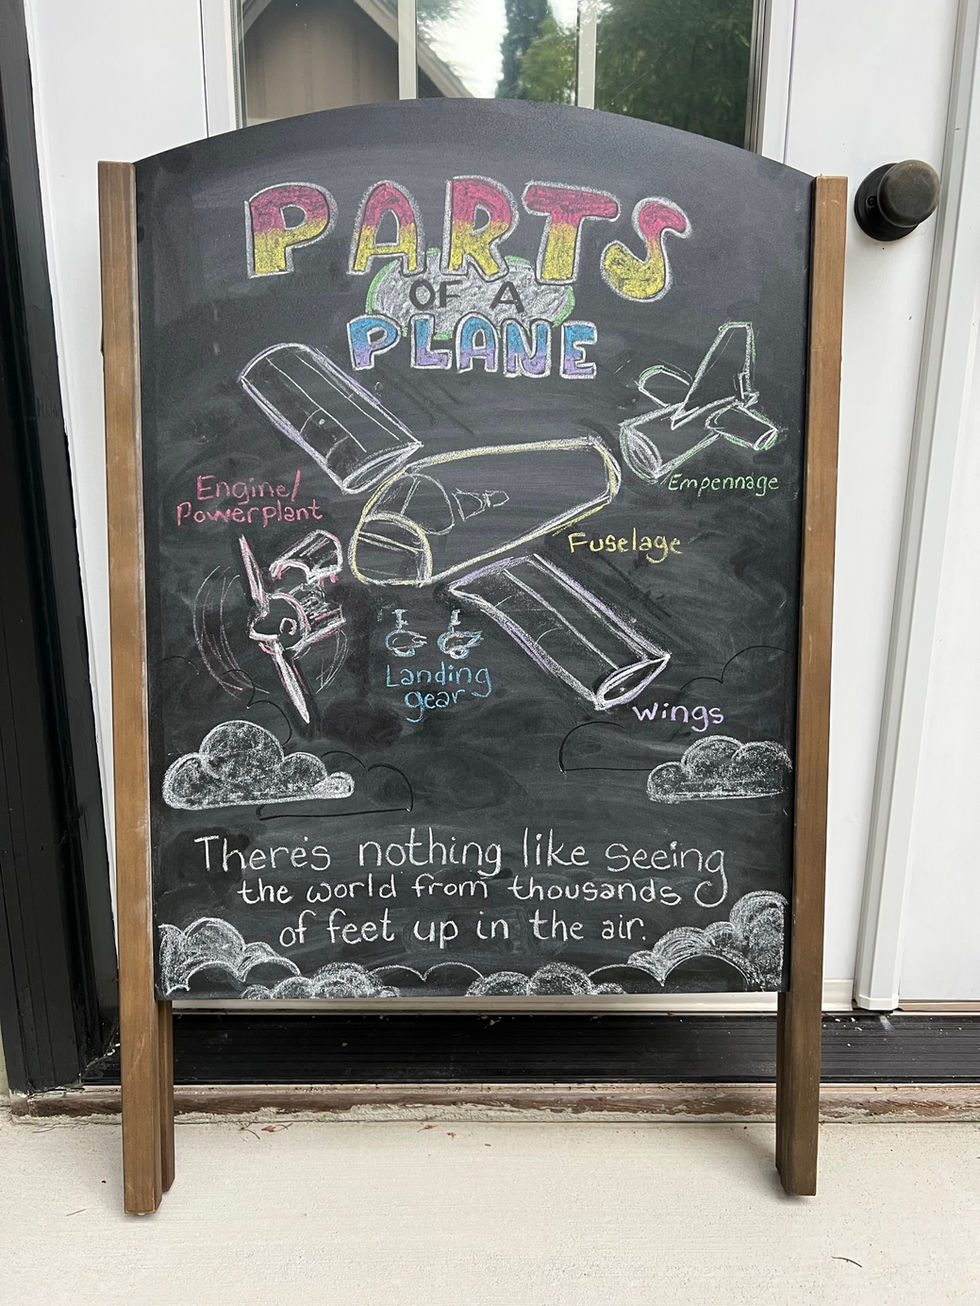 PARTS
OF A
PLANE
Empennage
Engine/
Powerplant
Fuselage
Landing
gear
Wings
There's nothing like seeing
the world from thousands
of feet up in the air.